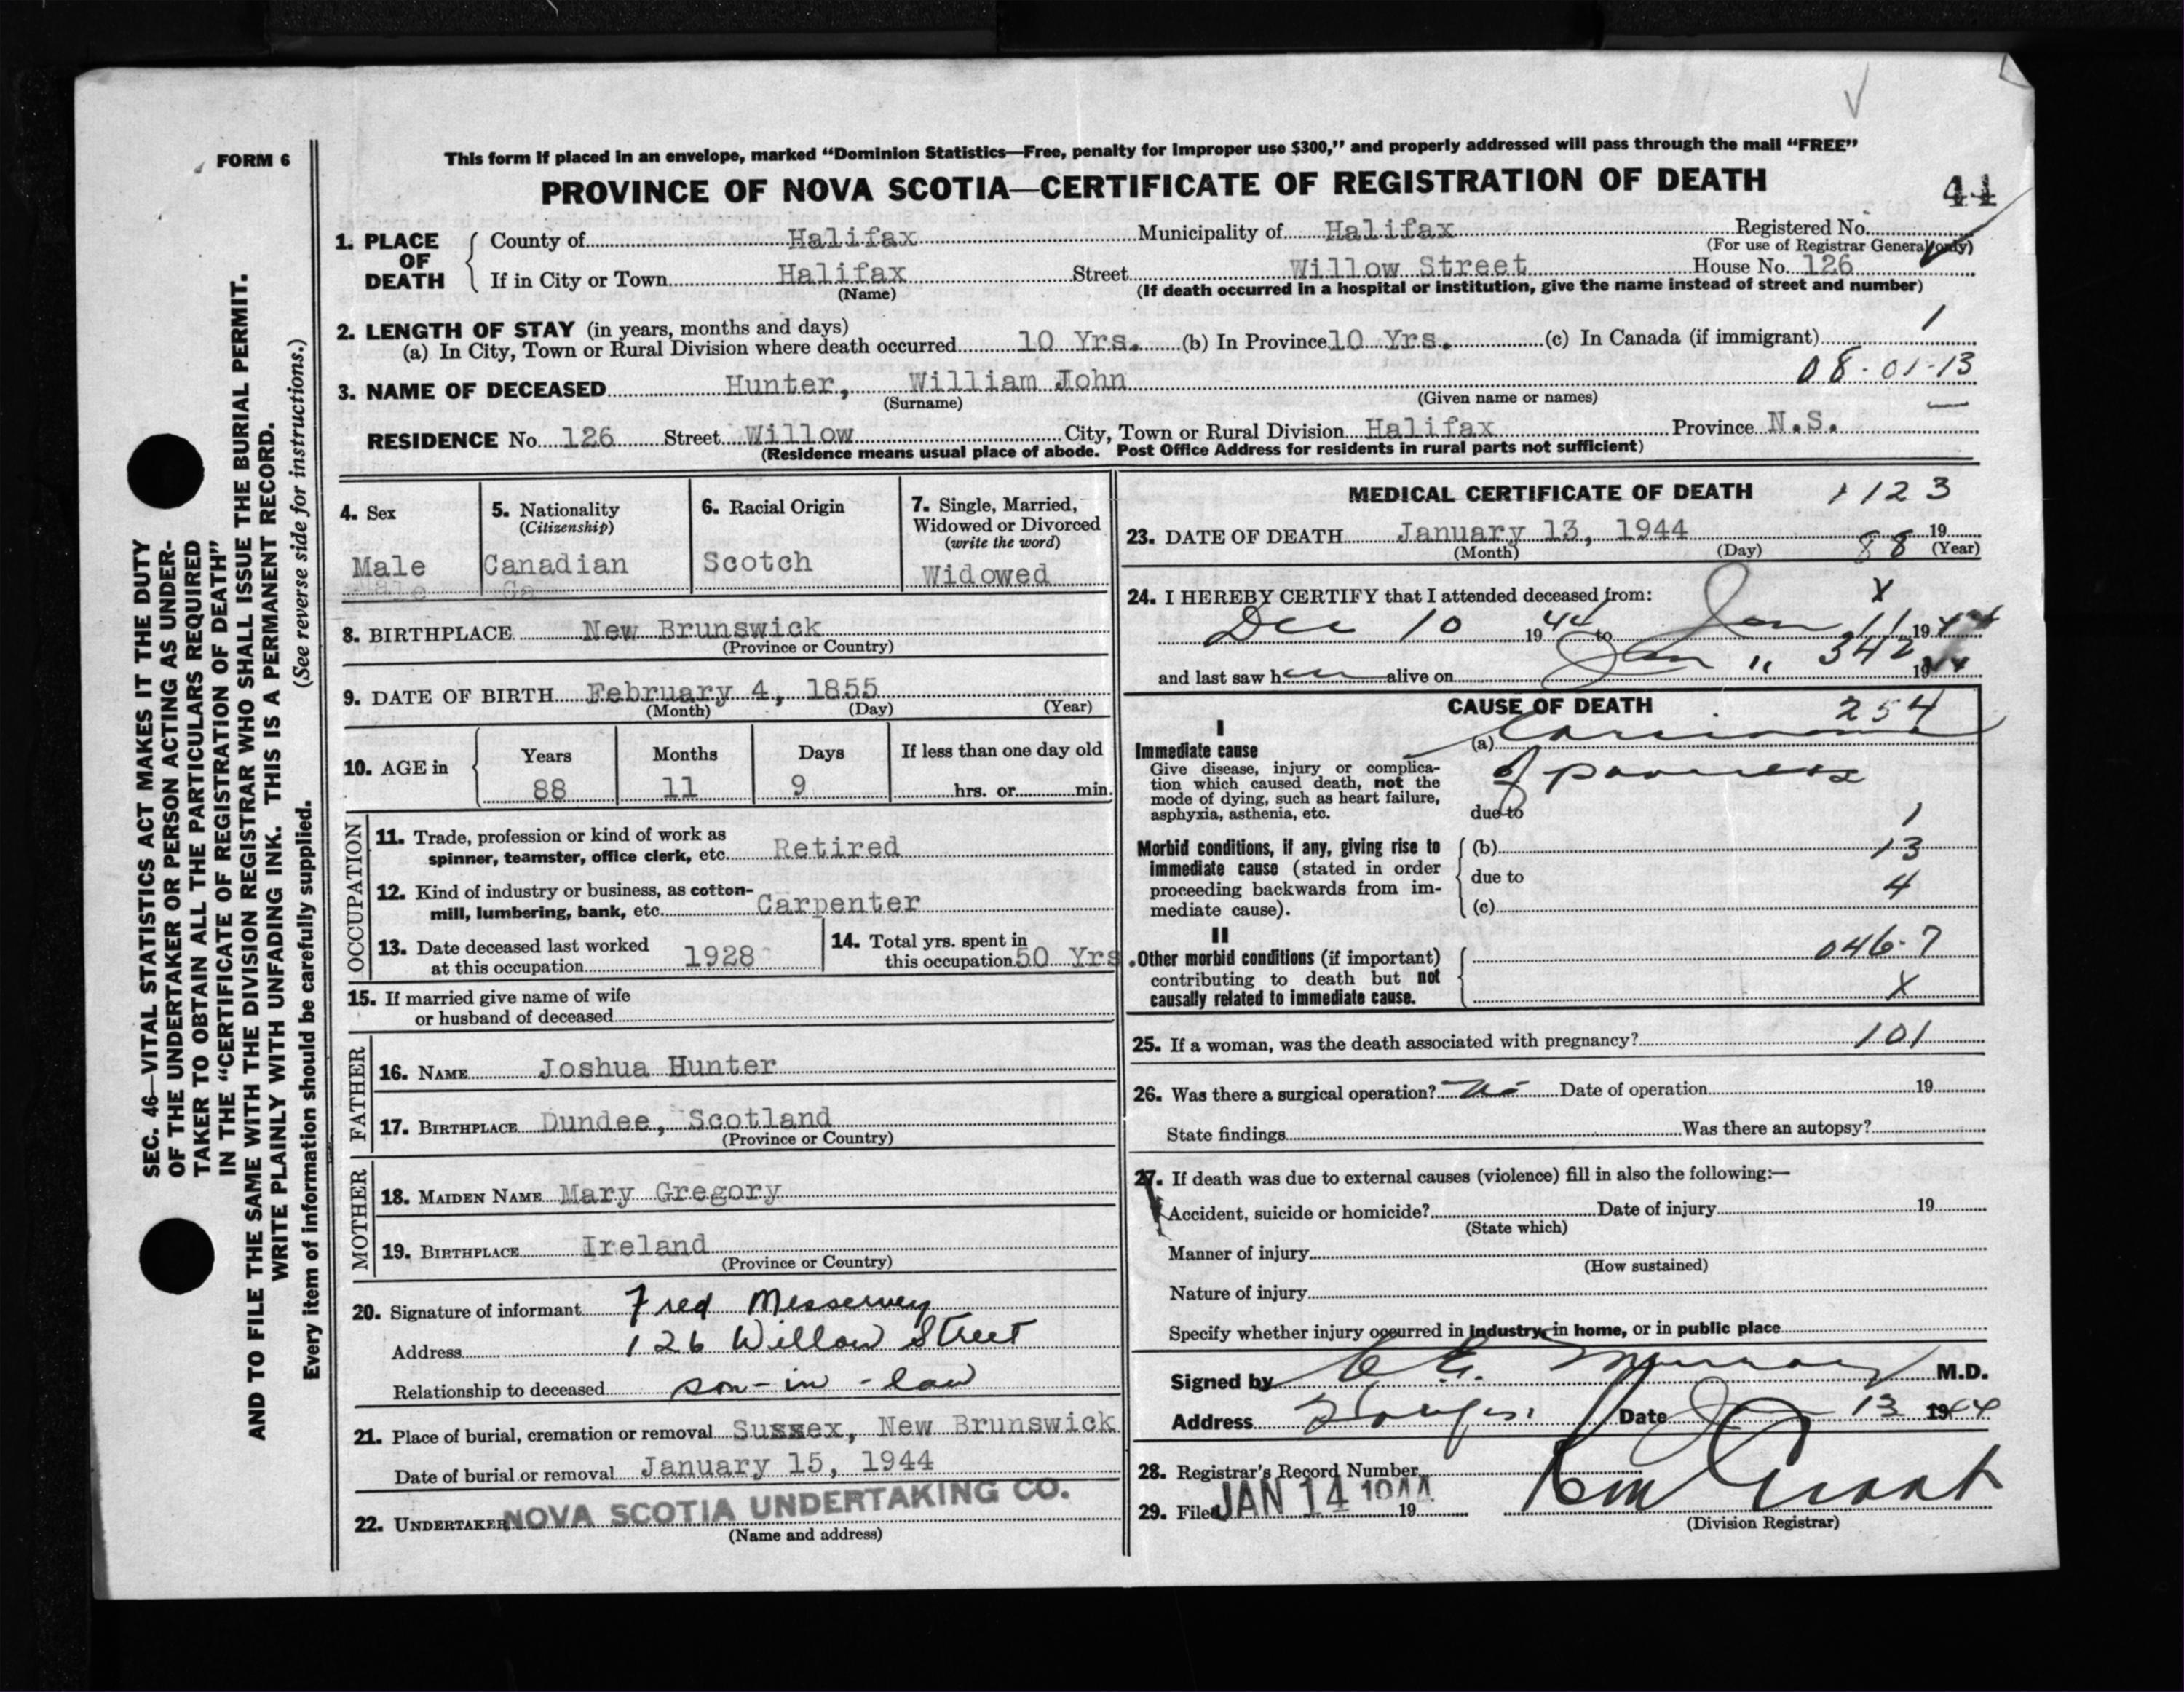 FORM 6
This form if placed in an envelope, marked “Dominion Statistics—Free, penalty for improper use $300,” and properly addressed will pass through the mail “FREE”
PROVINCE OF NOVA SCOTIA—CERTIFICATE OF REGISTRATION OF DEATH
44
1. PLACE OF DEATH
County of Halifax Municipality of Halifax Registered No.
(For use of Registrar General only)
If in City or Town Halifax Street Willow Street House No. 126
(Name) (If death occurred in a hospital or institution, give the name instead of street and number)
2. LENGTH OF STAY (in years, months and days) 1
(a) In City, Town or Rural Division where death occurred 10 Yrs. (b) In Province 10 Yrs. (c) In Canada (if immigrant)
08-01-13
3. NAME OF DECEASED Hunter, William John
(Surname) (Given name or names)
RESIDENCE No. 126 Street Willow City, Town or Rural Division Halifax Province N.S.
(Residence means usual place of abode. Post Office Address for residents in rural parts not sufficient)
4. Sex
Male
5. Nationality
(Citizenship)
Canadian
6. Racial Origin
Scotch
7. Single, Married,
Widowed or Divorced
(write the word)
Widowed
8. BIRTHPLACE New Brunswick
(Province or Country)
9. DATE OF BIRTH February 4, 1855
(Month) (Day) (Year)
10. AGE in
Years Months Days If less than one day old
88 11 9 hrs. or min.
OCCUPATION
11. Trade, profession or kind of work as
spinner, teamster, office clerk, etc. Retired
12. Kind of industry or business, as cotton-
mill, lumbering, bank, etc. Carpenter
13. Date deceased last worked
at this occupation 1928
14. Total yrs. spent in
this occupation 50 Yrs.
15. If married give name of wife
or husband of deceased
FATHER
16. NAME Joshua Hunter
17. BIRTHPLACE Dundee, Scotland
(Province or Country)
MOTHER
18. MAIDEN NAME Mary Gregory
19. BIRTHPLACE Ireland
(Province or Country)
20. Signature of informant Fred Messervey
Address 126 Willow Street
Relationship to deceased son-in-law
21. Place of burial, cremation or removal Sussex, New Brunswick
Date of burial or removal January 15, 1944
22. UNDERTAKER NOVA SCOTIA UNDERTAKING CO.
(Name and address)
MEDICAL CERTIFICATE OF DEATH 1123
23. DATE OF DEATH January 13, 1944 19
(Month) (Day) 88 (Year)
24. I HEREBY CERTIFY that I attended deceased from: X
Dec 10 1944 to Jan 11 1944
342
and last saw him alive on Jan 11 1944
CAUSE OF DEATH 254
I
Immediate cause
Give disease, injury or complica-
tion which caused death, not the
mode of dying, such as heart failure,
asphyxia, asthenia, etc.
(a) Carcinoma
of pancreas
due to 1
Morbid conditions, if any, giving rise to
immediate cause (stated in order
proceeding backwards from im-
mediate cause).
(b) 13
due to 4
(c)
II
Other morbid conditions (if important)
contributing to death but not
causally related to immediate cause.
046-7
X
25. If a woman, was the death associated with pregnancy? 101
26. Was there a surgical operation? no Date of operation 19
State findings Was there an autopsy?
27. If death was due to external causes (violence) fill in also the following:—
Accident, suicide or homicide? Date of injury 19
(State which)
Manner of injury
(How sustained)
Nature of injury
Specify whether injury occurred in industry, in home, or in public place
Signed by Murray M.D.
Address Date Jan 13 1944
28. Registrar's Record Number
29. Filed JAN 14 1944 19
(Division Registrar)
SEC. 46—VITAL STATISTICS ACT MAKES IT THE DUTY
OF THE UNDERTAKER OR PERSON ACTING AS UNDER-
TAKER TO OBTAIN ALL THE PARTICULARS REQUIRED
IN THE “CERTIFICATE OF REGISTRATION OF DEATH”
AND TO FILE THE SAME WITH THE DIVISION REGISTRAR WHO SHALL ISSUE THE BURIAL PERMIT.
WRITE PLAINLY WITH UNFADING INK. THIS IS A PERMANENT RECORD.
Every item of information should be carefully supplied. (See reverse side for instructions.)